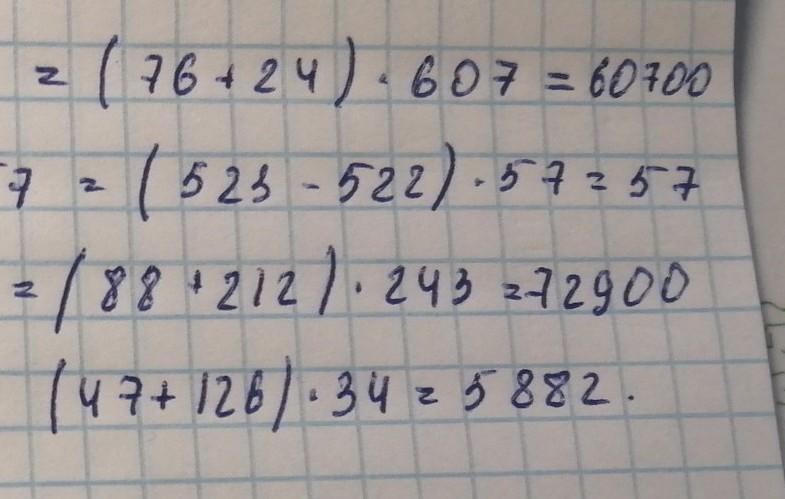 = (76 + 24) · 607 = 60700
57 = (523 - 522) · 57 = 57
= (88 + 212) · 243 = 72900
(47 + 126) · 34 = 5882.